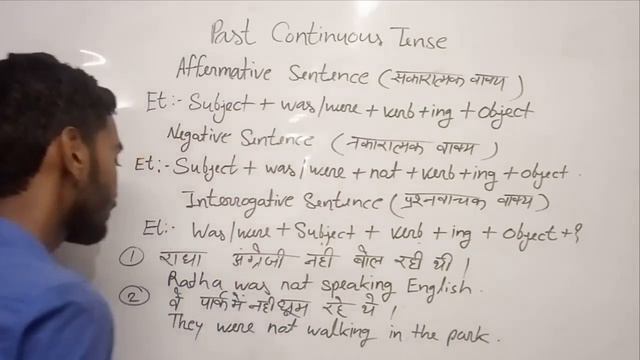 Past Continuous Tense
Affermative Sentence (सकारात्मक वाक्य)
Et:- Subject + was/were + verb + ing + object
Negative Sentence (नकारात्मक वाक्य)
Et:- Subject + was/were + not + verb + ing + object.
Interrogative Sentence (प्रश्नवाचक वाक्य)
Et:- Was/were + Subject + verb + ing + object + ?
① राधा अंग्रेजी नहीं बोल रही थी।
Radha was not speaking English.
② वे पार्क में नही घूम रहे थे।
They were not walking in the park.